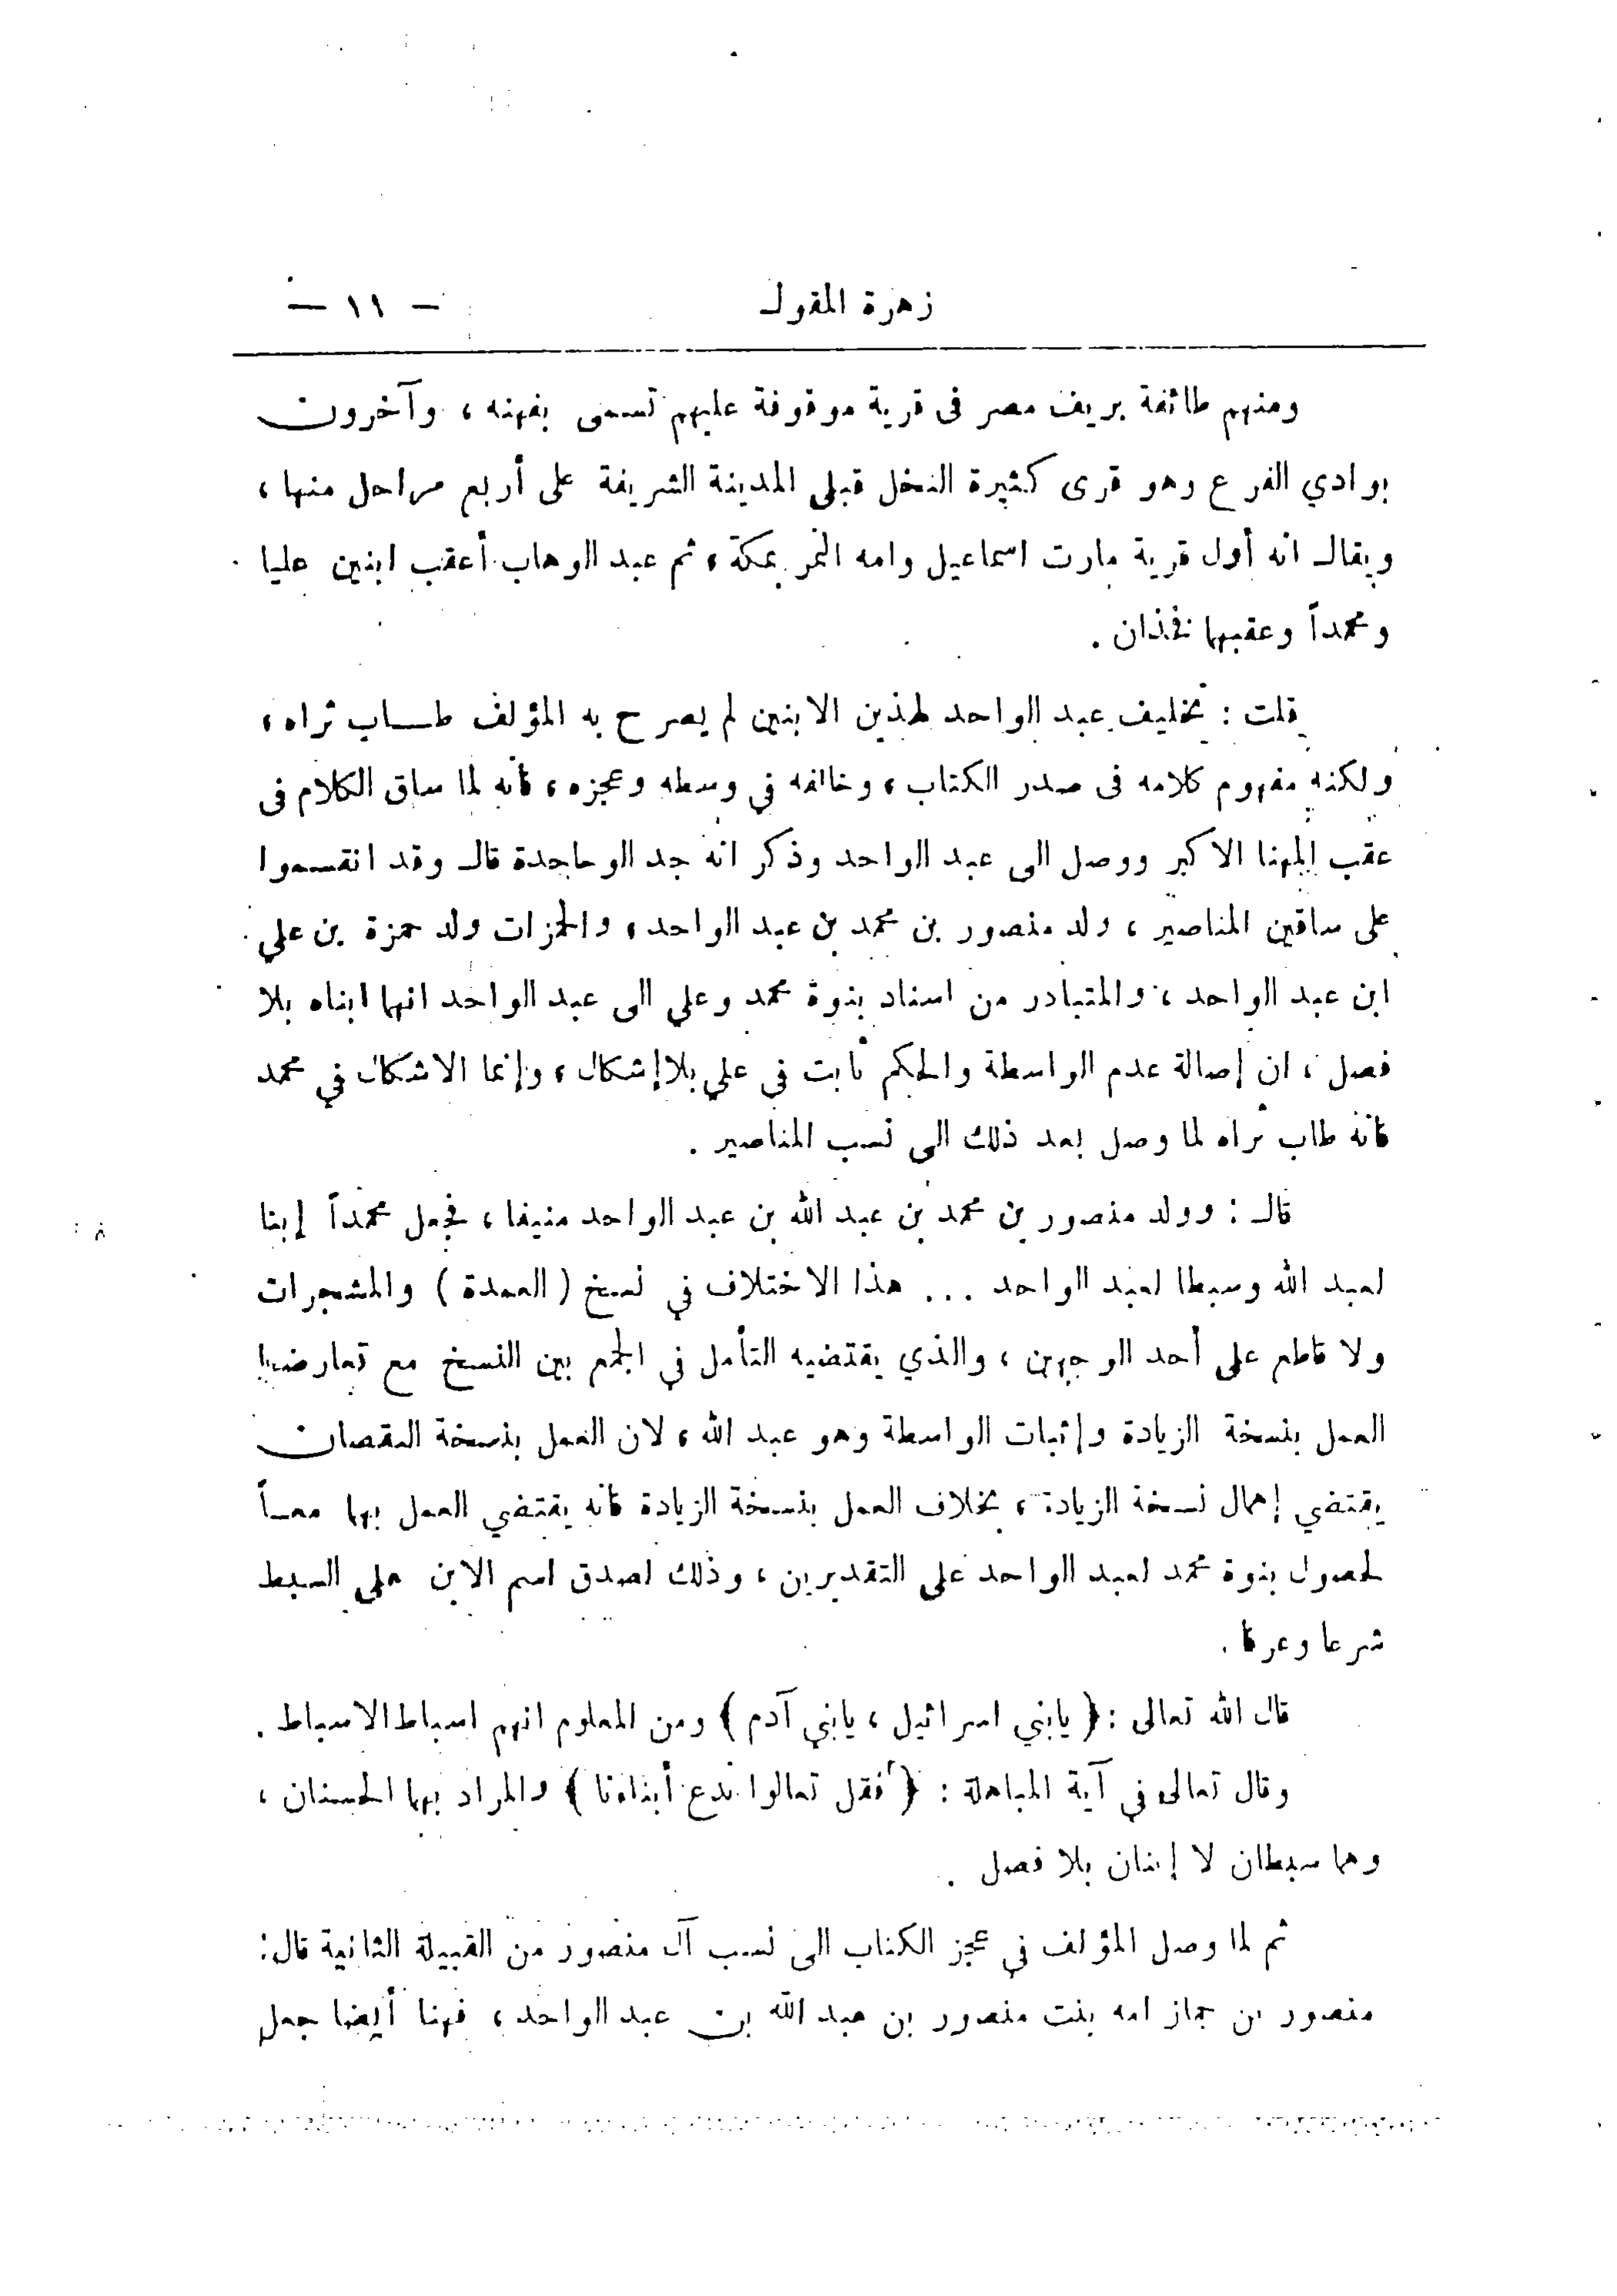 زهرة المقول — ١١ —
ومنهم طائفة بريف مصر فى قرية موقوفة عليهم تسمى بفهنه ، وآخرون
بوادي الفرع وهو قرى كثيرة النخل قبلى المدينة الشريفة على أربع مراحل منها ،
ويقال انه أول قرية مارت اسماعيل وامه التمر بمكة ، ثم عبد الوهاب أعقب ابنين عليا
ومحمداً وعقبهما فخذان .
قلت : تخليف عبد الواحد لهذين الابنين لم يصرح به المؤلف طاب ثراه ،
ولكنه مفهوم كلامه فى صدر الكتاب ، وخالفه في وسطه وعجزه ، فانه لما ساق الكلام فى
عقب المهنا الاكبر ووصل الى عبد الواحد وذكر انه جد الوحاحدة قال وقد انقسموا
على ساقين المناصير ، ولد منصور بن محمد بن عبد الواحد ، والحمزات ولد حمزة بن علي
ابن عبد الواحد ، والمتبادر من اسناد بنوة محمد وعلي الى عبد الواحد انهما ابناه بلا
فصل ، ان إصالة عدم الواسطة والحكم ثابت فى علي بلا إشكال ، وإنما الاشكال في محمد
فانه طاب ثراه لما وصل بعد ذلك الى نسب المناصير .
قال : وولد منصور بن محمد بن عبد الله بن عبد الواحد منيفا ، فجعل محمداً إبنا
لعبد الله وسبطا لعبد الواحد ... هذا الاختلاف في نسخ ( العمدة ) والمشجرات
ولا قاطع على أحد الوجهين ، والذي يقتضيه التأمل في الجمع بين النسخ مع تعارضها
العمل بنسخة الزيادة وإثبات الواسطة وهو عبد الله ، لان العمل بنسخة النقصان
يقتضي إهمال نسخة الزيادة ، بخلاف العمل بنسخة الزيادة فانه يقتضي العمل بهما معاً
لحصول بنوة محمد لعبد الواحد على التقديرين ، وذلك لصدق اسم الابن على السبط
شرعا وعرفا .
قال الله تعالى : ﴿ يابني اسرائيل ، يابني آدم ﴾ ومن المعلوم انهم اسباط الاسباط .
وقال تعالى في آية المباهلة : ﴿ فقل تعالوا ندع أبناءنا ﴾ والمراد بهما الحسنان ،
وهما سبطان لا إبنان بلا فصل .
ثم لما وصل المؤلف في عجز الكتاب الى نسب آل منصور من القبيلة الثانية قال :
منصور بن جماز امه بنت منصور بن عبد الله بن عبد الواحد ، فهنا أيضا جعل